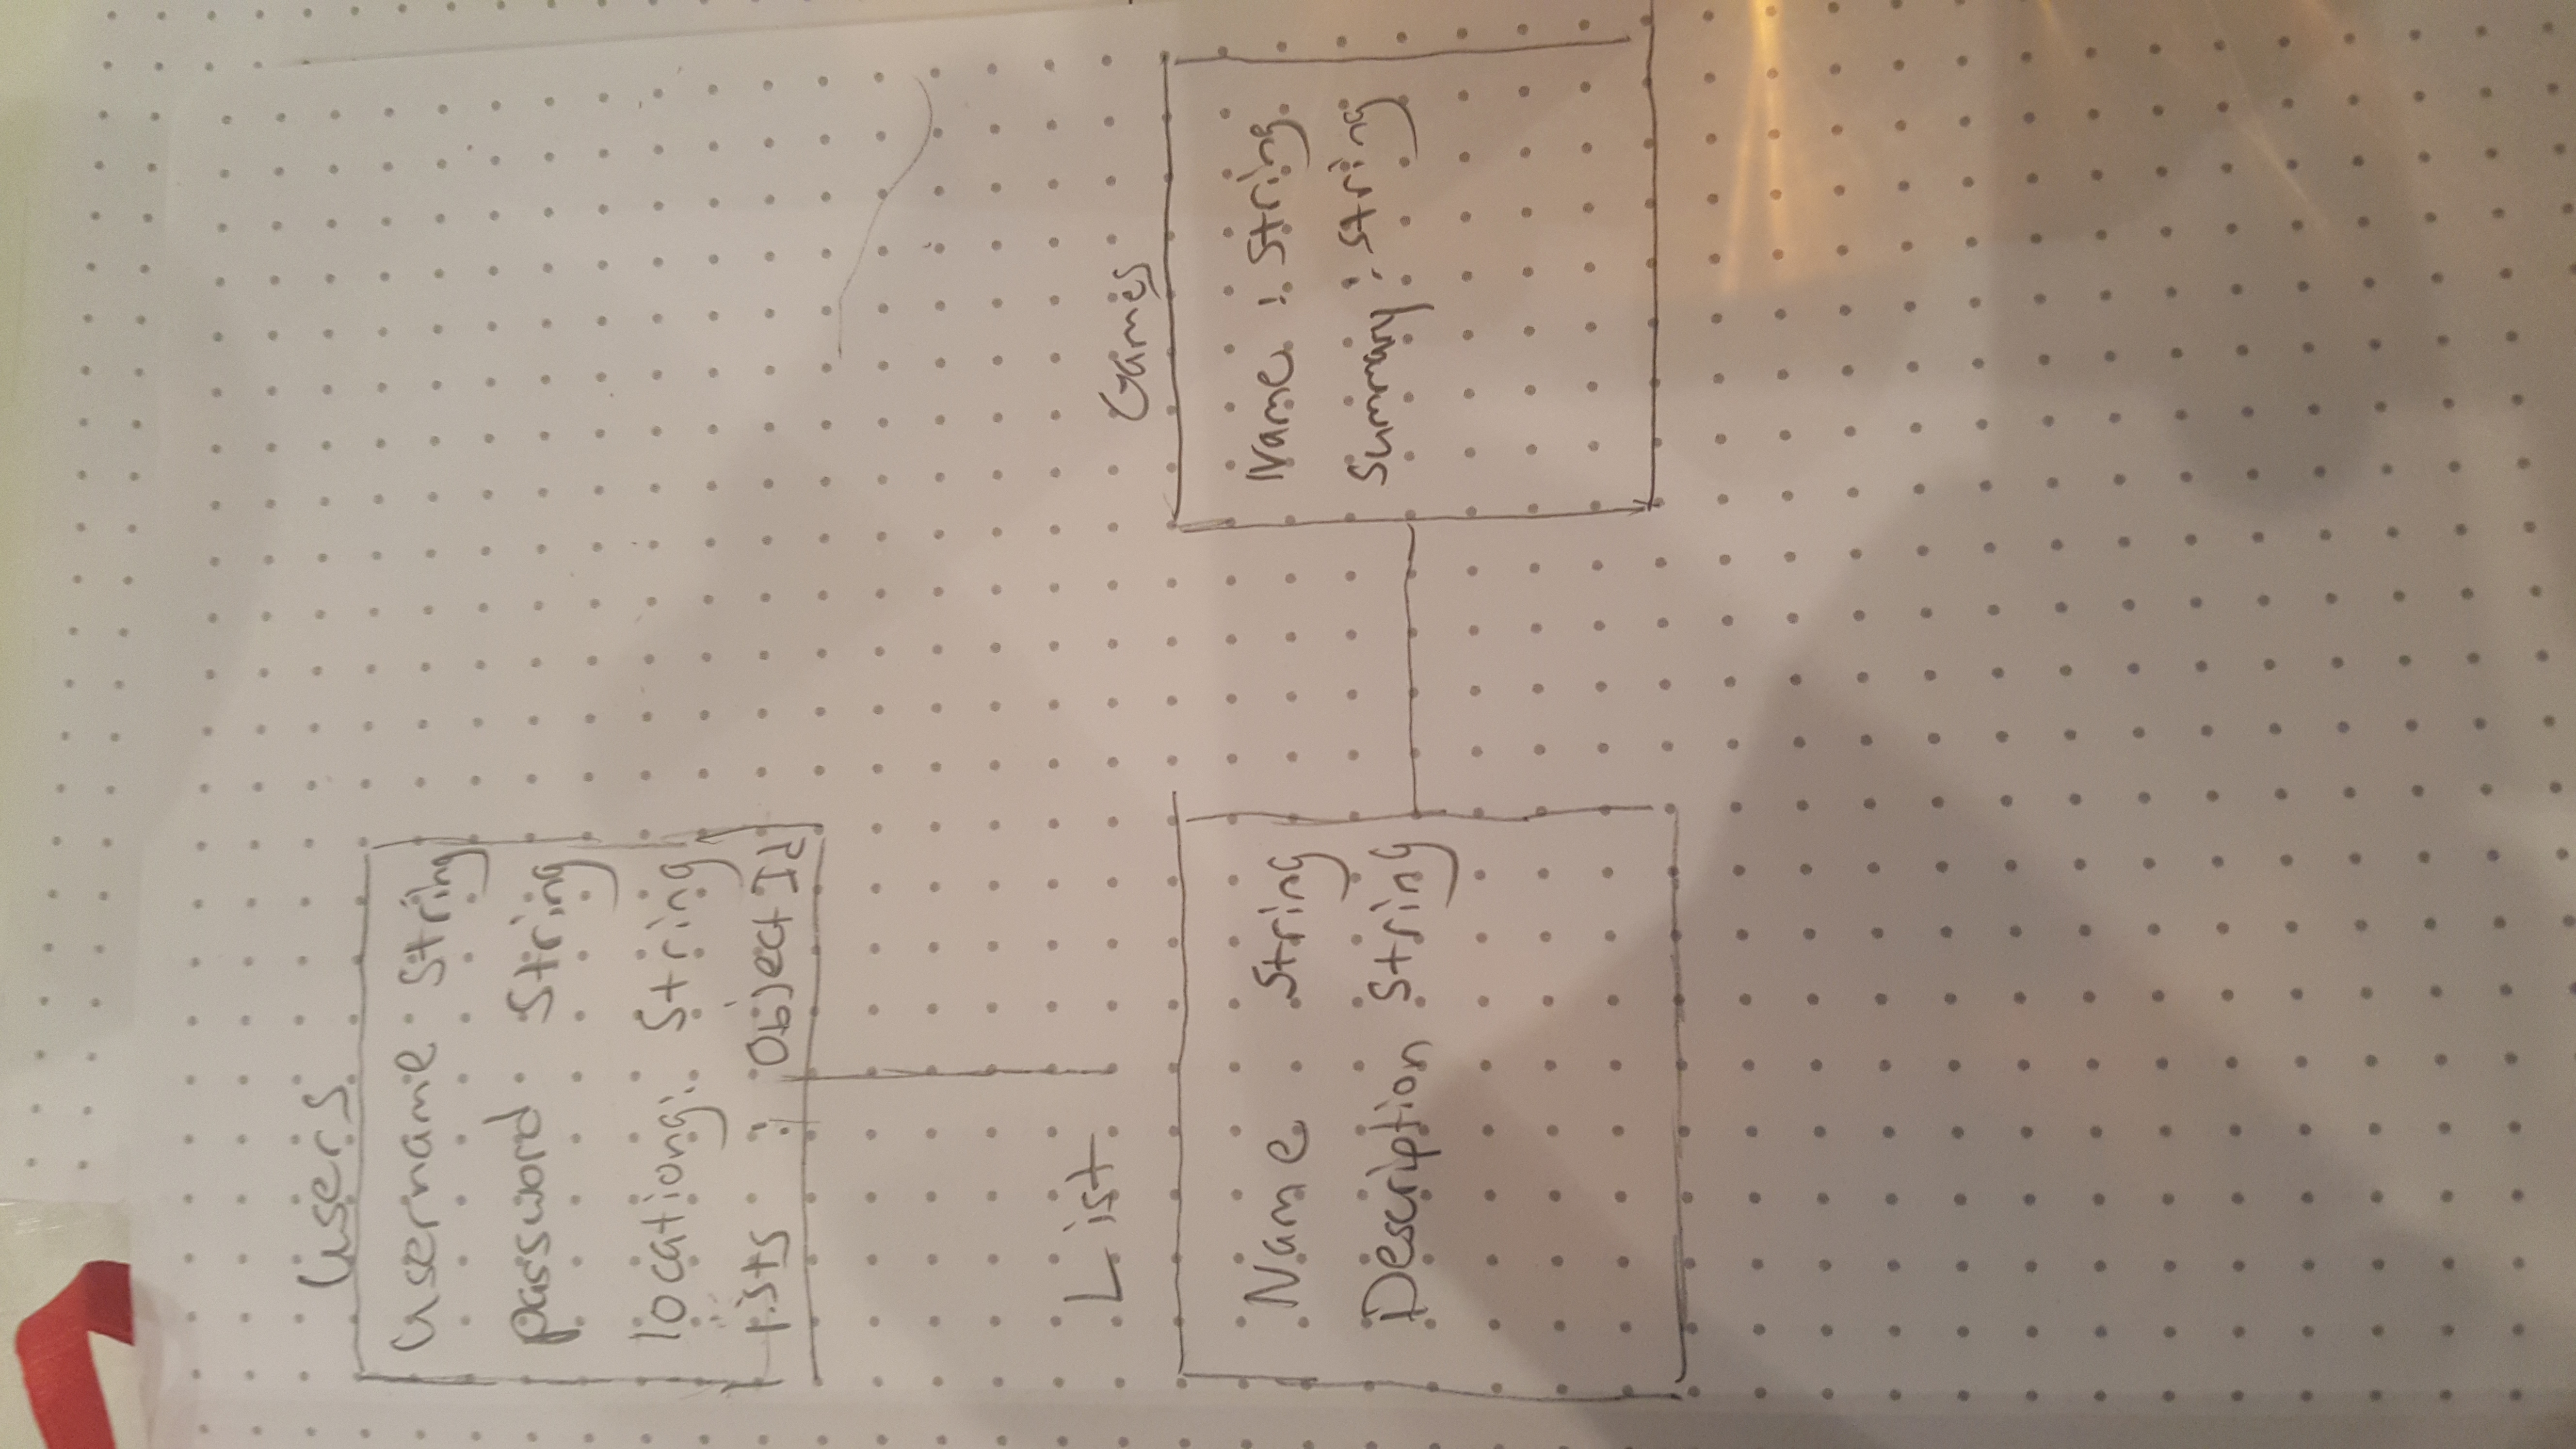 Users
Username : String
password : String
locationg: String
Lists : Object Id
List
Name String
Description String
Games
Name : String
Summary : String